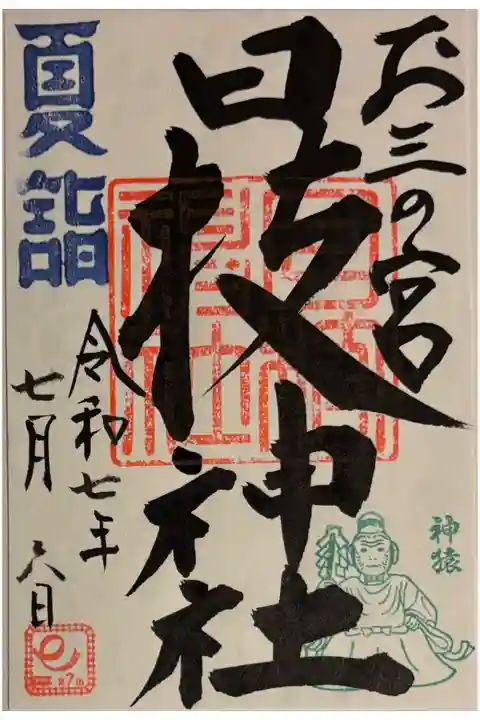 お三の宮
日枝神社
夏詣
令和七年
七月
六日
神猿